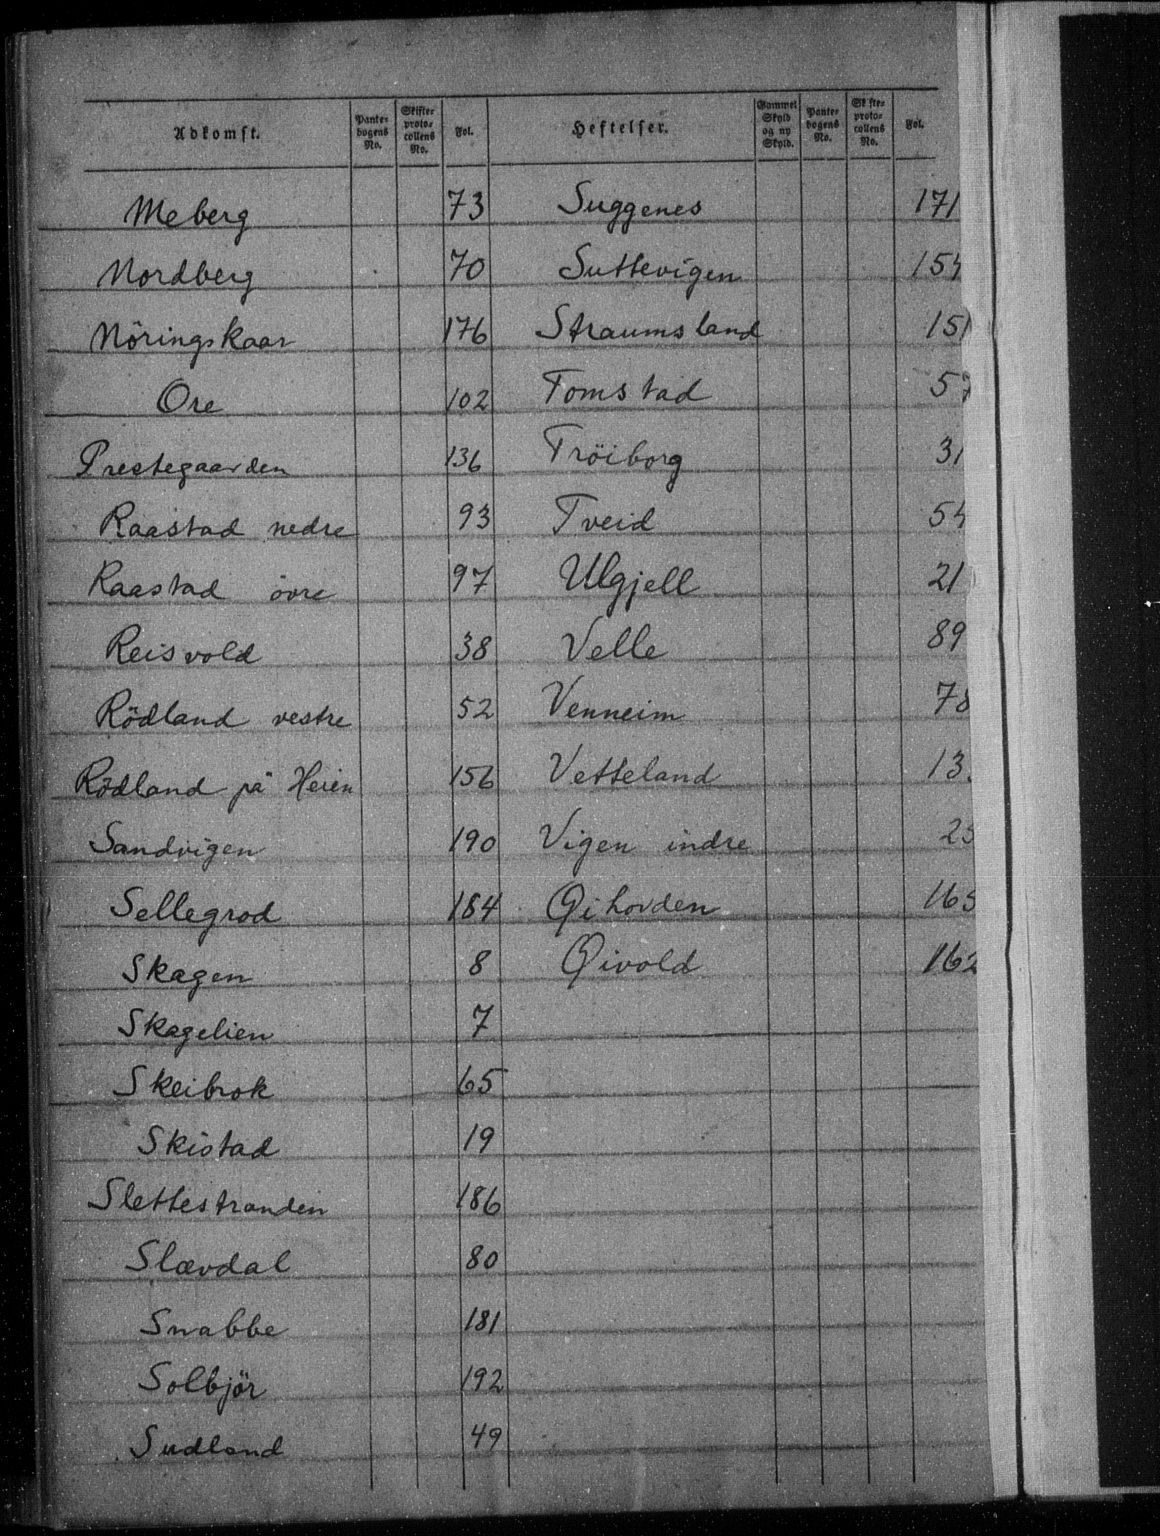 Adkomst. Pante-bogens No. Skifte-proto-collens No. Fol. Heftelser. Gammel Skyld og ny Skyld. Pante-bogens No. Skifte-proto-collens No. Fol.
Meberg 73 Suggenes 171
Nordberg 70 Suttevigen 154
Nöringskaar 176 Straumsland 151
Ore 102 Tomstad 57
Prestegaarden 136 Tröiborg 31
Raastad nedre 93 Tveid 54
Raastad övre 97 Ulgjell 21
Reisvold 38 Velle 89
Rödland vestre 52 Venneim 78
Rödland på Heien 156 Vetteland 13
Sandvigen 190 Vigen indre
Sellegrod 184 Øihovden 165
Skagen 8 Øivold 162
Skagelien 7
Skeibrok 65
Skistad 19
Slettestranden 186
Slævdal 80
Snabbe 181
Solbjör 192
Sudland 49